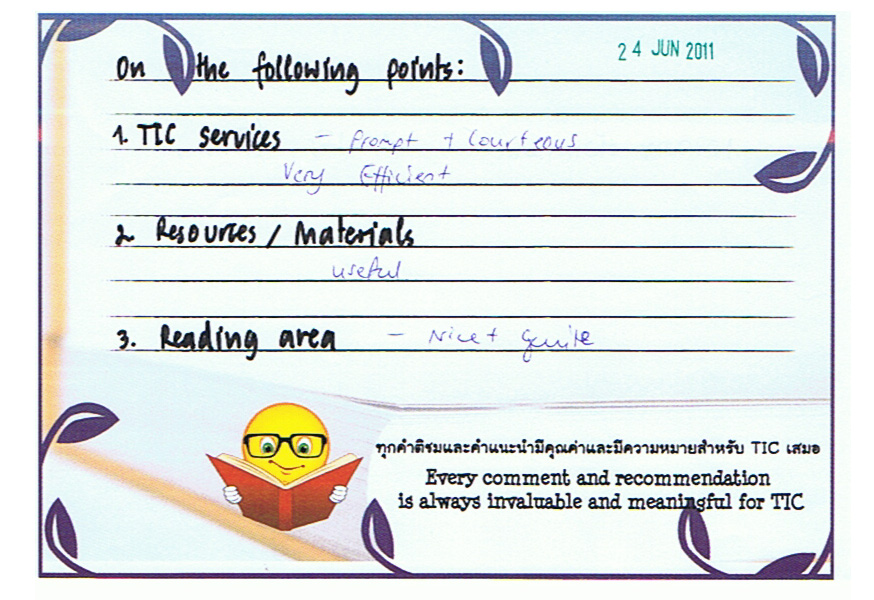 24 JUN 2011
On the following points:
1. TIC services - Prompt + Courteous
Very Efficient
2. Resources / Materials
useful
3. Reading area - Nice + quite
ทุกคำติชมและคำแนะนำมีคุณค่าและมีความหมายสำหรับ TIC เสมอ
Every comment and recommendation
is always invaluable and meaningful for TIC